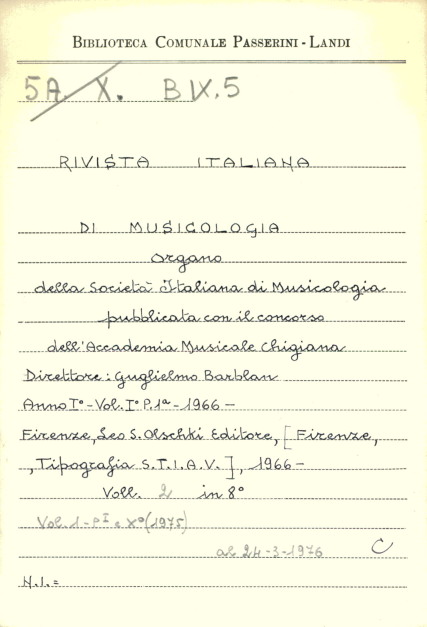 BIBLIOTECA COMUNALE PASSERINI - LANDI
5A. X. B IX.5
RIVISTA ITALIANA
DI MUSICOLOGIA
Organo
della Società Italiana di Musicologia
pubblicata con il concorso
dell'Accademia Musicale Chigiana
Direttore: Guglielmo Barblan
Anno I° - Vol. I° P. 1ª - 1966 -
Firenze, Leo S. Olschki Editore, [Firenze,
, Tipografia S.T.I.A.V.], 1966 -
Voll. 2 in 8°
Vol. 1 - P I e X° (1975)
al 24-3-1976 C
N.I. =